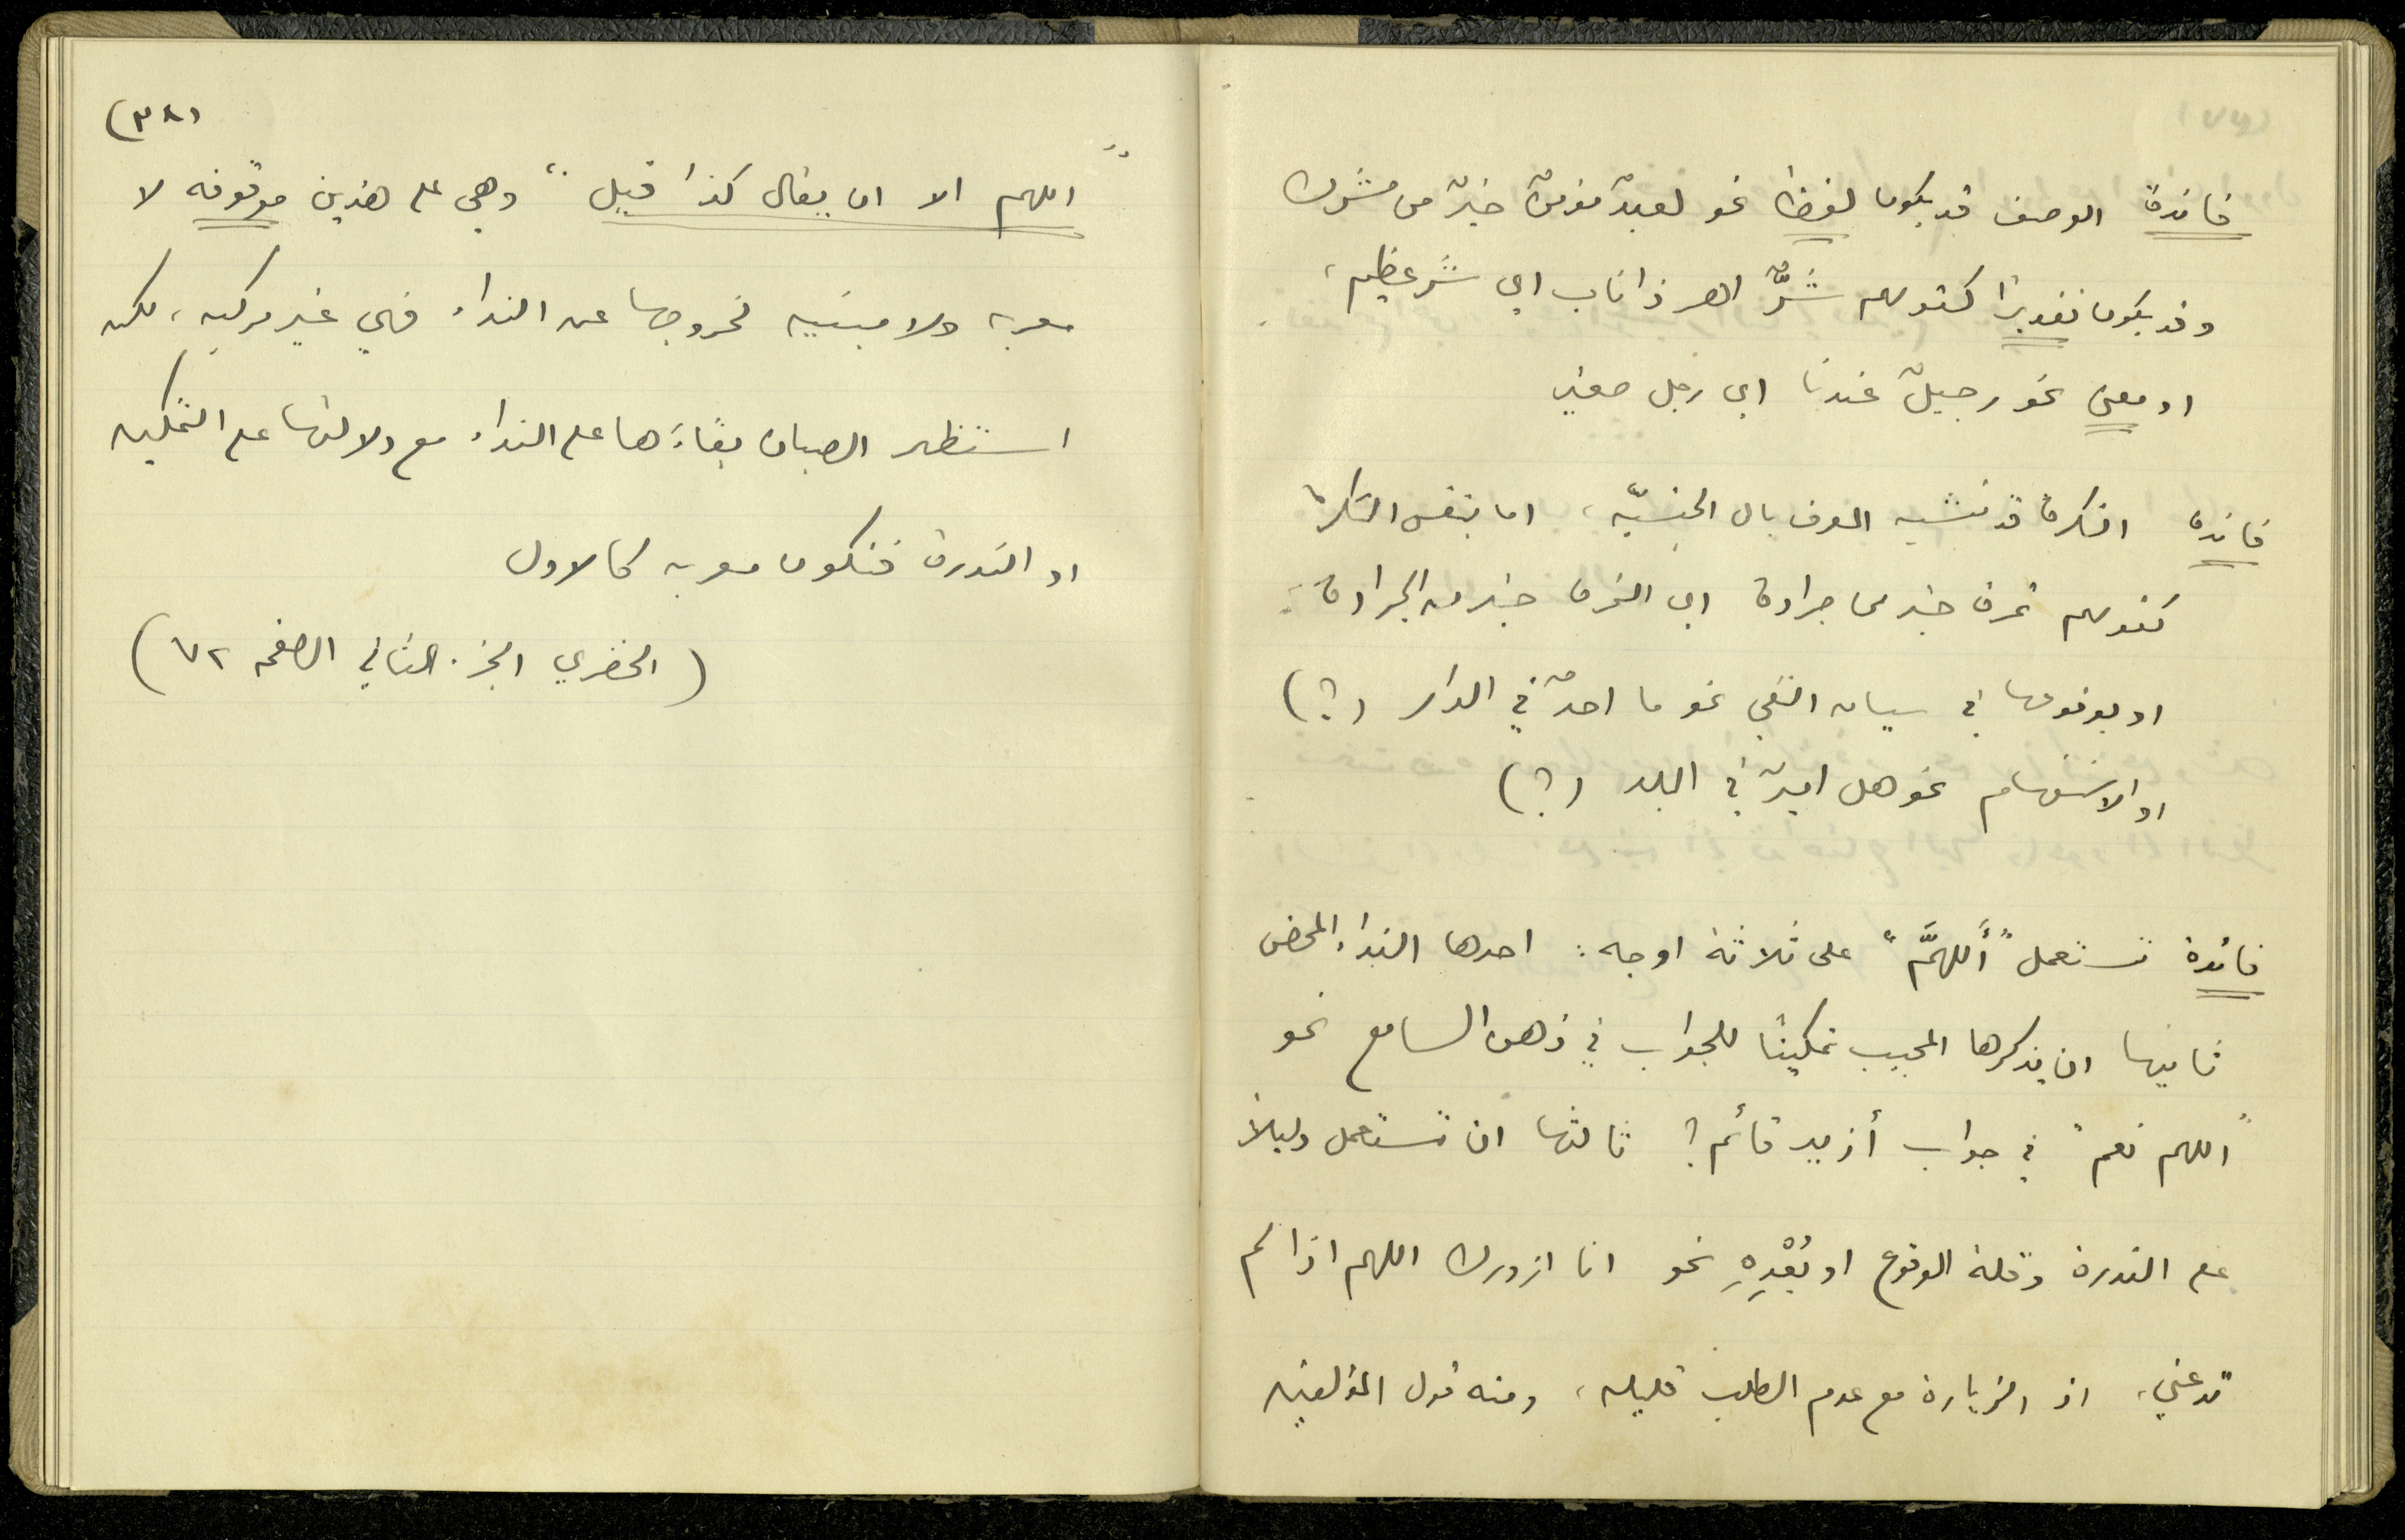 فائدة الوصف قد يكون لفظا نحو لعبدٌ مؤمنٌ خيرٌ من مشرك
وقد يكون تقديرًا كقولهم شرٌّ اهر ذا ناب اي شر عظيم،
او معنى نحو رجيلٌ عندنا اي رجل صغير
فائدة النكرة قد تشبه المعرف بال الجنسيّه، اما بنفس النكرة
كقولهم تمرة خير من جرادة اي التمرة خير من الجرادة
او بوقوعها في سياق النفي نحو ما احدٌ في الدار (؟)
او الاستفهام نحو هل اميرٌ في البلد (؟)
فائدة تستعمل "أَللهمَّ" على ثلاثة اوجه: احدها النداء المحض
ثانيها ان يذكرها المجيب تمكينًا للجواب في ذهن السامع نحو
"اللهم نعم" في جواب أزيد قائم؟ ثالثها ان تستعمل دليلًا
على الندرة وقلة الوقوع او بُعْدِهِ نحو انا ازورك اللهم اذا لم
تدعني، اذ الزيارة مع عدم الطلب قليله، ومنه قول المؤلفين
(٣٨)
"اللهم الا ان يقال كذا قيل" وهي على هذين موقوفه لا
معربه ولا مبنيه لخروجها عن النداء فهي غير مركبه، لكن
استظهر الصبان بقاءَها على النداء مع دلالتها على التمكين
او الندرة فتكون معربه كالاول
(الخضري الجزء الثاني الصفحه ٧٢)